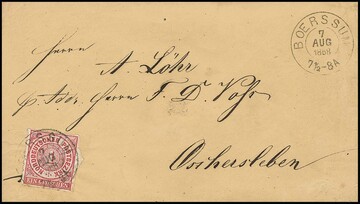 BOERSSUM
7
AUG
1868
7½-8A
Herrn
A. Löhr
p. Adr. Herrn F. D. Voss
Oschersleben
NORDDEUTSCHER POSTBEZIRK
EIN GROSCHEN